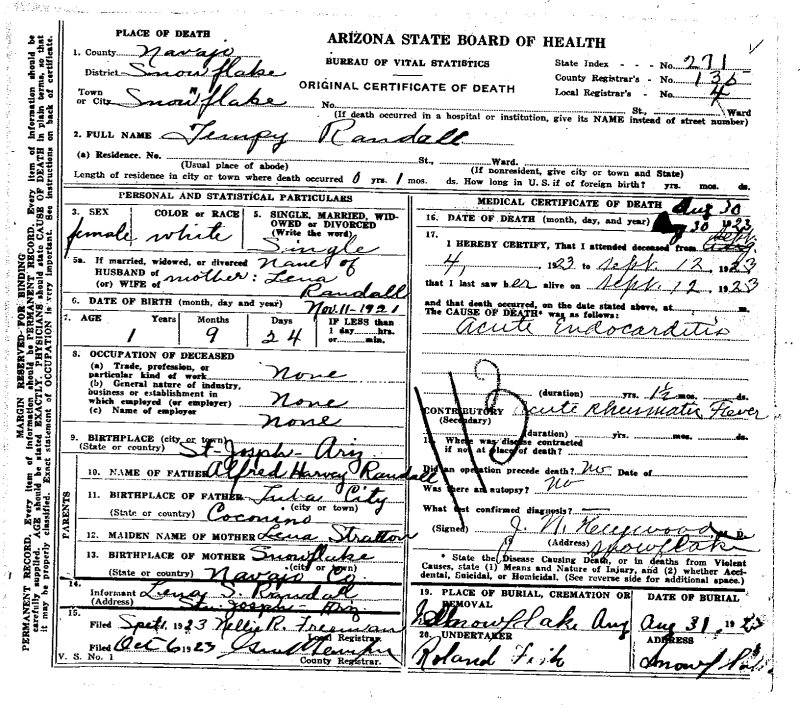 PLACE OF DEATH
ARIZONA STATE BOARD OF HEALTH
1. County Navajo
BUREAU OF VITAL STATISTICS
State Index - - - No. 271
District Snowflake
County Registrar's - No. 135
ORIGINAL CERTIFICATE OF DEATH
Local Registrar's - No. 4
Town or City Snowflake No. St., Ward
(If death occurred in a hospital or institution, give its NAME instead of street number)
2. FULL NAME Tempy Randall
(a) Residence. No. St., Ward.
(Usual place of abode) (If nonresident, give city or town and State)
Length of residence in city or town where death occurred 0 yrs. 1 mos. ds. How long in U. S. if of foreign birth? yrs. mos. ds.
PERSONAL AND STATISTICAL PARTICULARS
3. SEX COLOR or RACE 5. SINGLE, MARRIED, WIDOWED or DIVORCED
(Write the word)
female white Single
5a. If married, widowed, or divorced name of
HUSBAND of mother: Lena
(or) WIFE of Randall
6. DATE OF BIRTH (month, day, and year) Nov. 11-1921
7. AGE Years Months Days IF LESS than
1 9 24 1 day hrs.
or min.
8. OCCUPATION OF DECEASED
(a) Trade, profession, or
particular kind of work None
(b) General nature of industry,
business or establishment in
which employed (or employer) None
(c) Name of employer None
9. BIRTHPLACE (city or town)
(State or country) St. Joseph - Ariz
PARENTS
10. NAME OF FATHER Alfred Harvey Randall
11. BIRTHPLACE OF FATHER Tuba City
(city or town)
(State or country) Coconino
12. MAIDEN NAME OF MOTHER Lena Stratton
13. BIRTHPLACE OF MOTHER Snowflake
(city or town)
(State or country) Navajo Co.
14.
Informant Lena S. Randall
(Address) St. Joseph - Ariz.
15.
Filed 1923 Nellie R. Freeman
Local Registrar.
Filed Oct 6 1923
County Registrar.
V. S. No. 1
MEDICAL CERTIFICATE OF DEATH
Aug 30
16. DATE OF DEATH (month, day, and year) Aug 30 1923
17.
I HEREBY CERTIFY, That I attended deceased from Sept.
4, 1923 to Sept. 12, 1923
that I last saw her alive on Sept. 12, 1923
and that death occurred, on the date stated above, at m.
The CAUSE OF DEATH* was as follows:
Acute Endocarditis
113
(duration) yrs. 1½ mos. ds.
CONTRIBUTORY Acute Rheumatic Fever
(Secondary)
(duration) yrs. mos. ds.
18. Where was disease contracted
if not at place of death?
Did an operation precede death? No Date of
Was there an autopsy? No
What test confirmed diagnosis? —
(Signed) J. N. Heywood M. D.
19 (Address) Snowflake
* State the Disease Causing Death, or in deaths from Violent
Causes, state (1) Means and Nature of Injury, and (2) whether Accidental, Suicidal, or Homicidal. (See reverse side for additional space.)
19. PLACE OF BURIAL, CREMATION OR REMOVAL DATE OF BURIAL
Snowflake Aug Aug 31, 1923
20. UNDERTAKER ADDRESS
Roland Fish Snowflake
MARGIN RESERVED FOR BINDING
PERMANENT RECORD. Every item of information should be
carefully supplied. AGE should be stated EXACTLY. PHYSICIANS should state CAUSE OF DEATH in plain terms, so that
it may be properly classified. Exact statement of OCCUPATION is very important. See instructions on back of certificate.